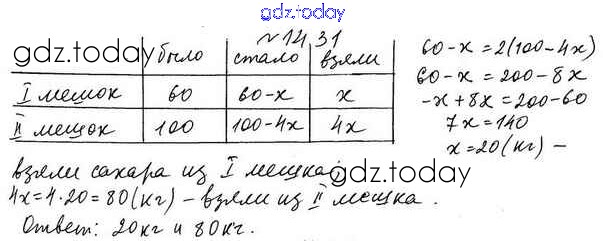 gdz.today
№ 1431
gdz.today
было стало взяли
I мешок 60 60-x x
II мешок 100 100-4x 4x
60-x=2(100-4x)
60-x=200-8x
-x+8x=200-60
7x=140
x=20(кг) –
взяли сахара из I мешка;
gdz.today
4x=4·20=80(кг) – взяли из II мешка.
Ответ: 20кг и 80кг.